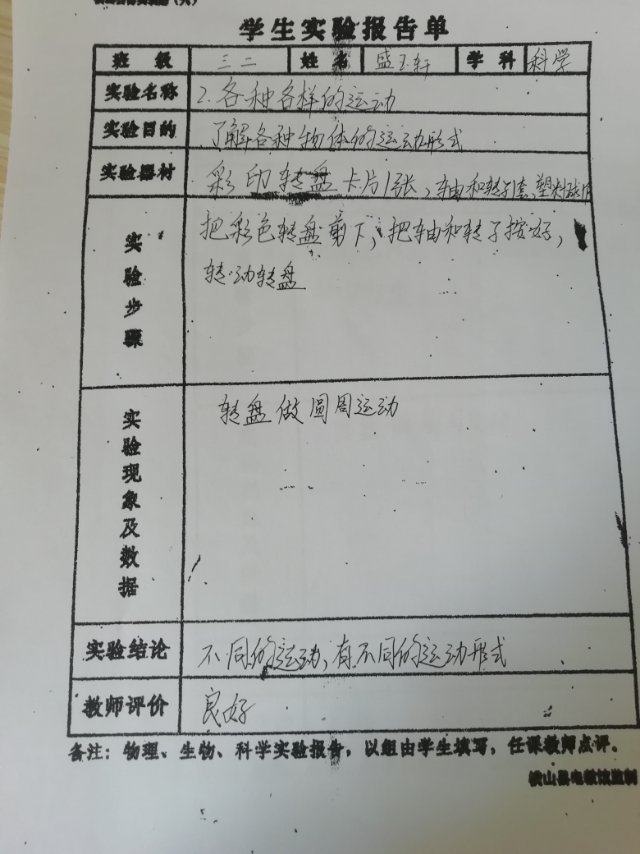 学生实验报告单
班 级 三二 姓 名 盛玉轩 学 科 科学
实验名称 2.各种各样的运动
实验目的 了解各种物体的运动形式
实验器材 彩印转盘卡片1张,轴和转子1套,塑料
实验步骤
把彩色转盘剪下,把轴和转子按好,
转动转盘
实验现象及数据
转盘做圆周运动
实验结论 不同的运动,有不同的运动形式
教师评价 良好
备注:物理、生物、科学实验报告,以组由学生填写,任课教师点评。
横山县电教馆监制